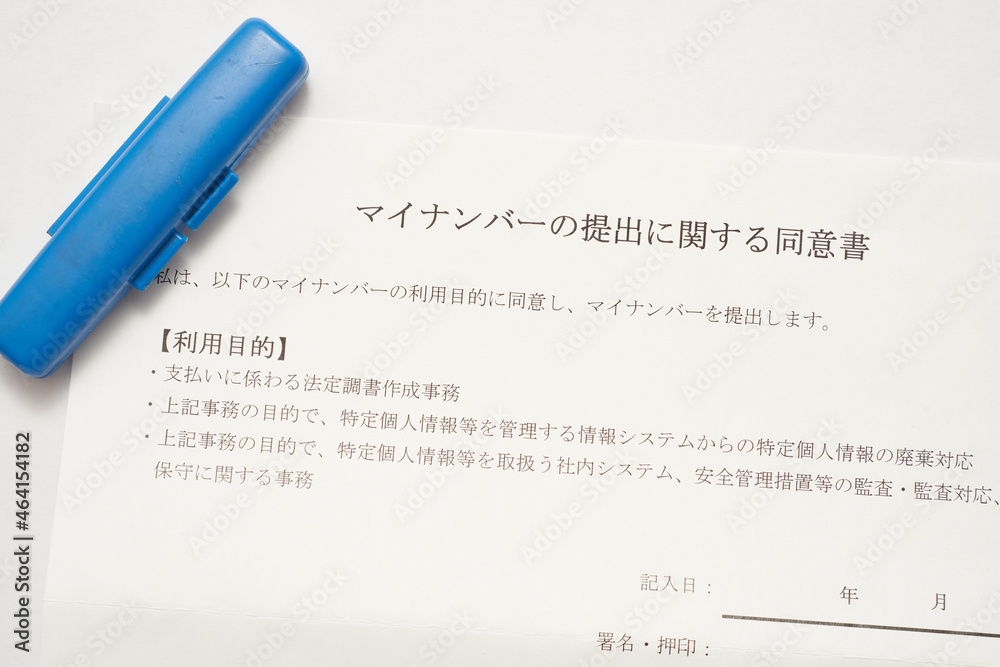 マイナンバーの提出に関する同意書
私は、以下のマイナンバーの利用目的に同意し、マイナンバーを提出します。
【利用目的】
・支払いに係わる法定調書作成事務
・上記事務の目的で、特定個人情報等を管理する情報システムからの特定個人情報の廃棄対応
・上記事務の目的で、特定個人情報等を取扱う社内システム、安全管理措置等の監査・監査対応、
保守に関する事務
記入日： 年 月
署名・押印：
Adobe Stock | #464154182
Adobe Stock